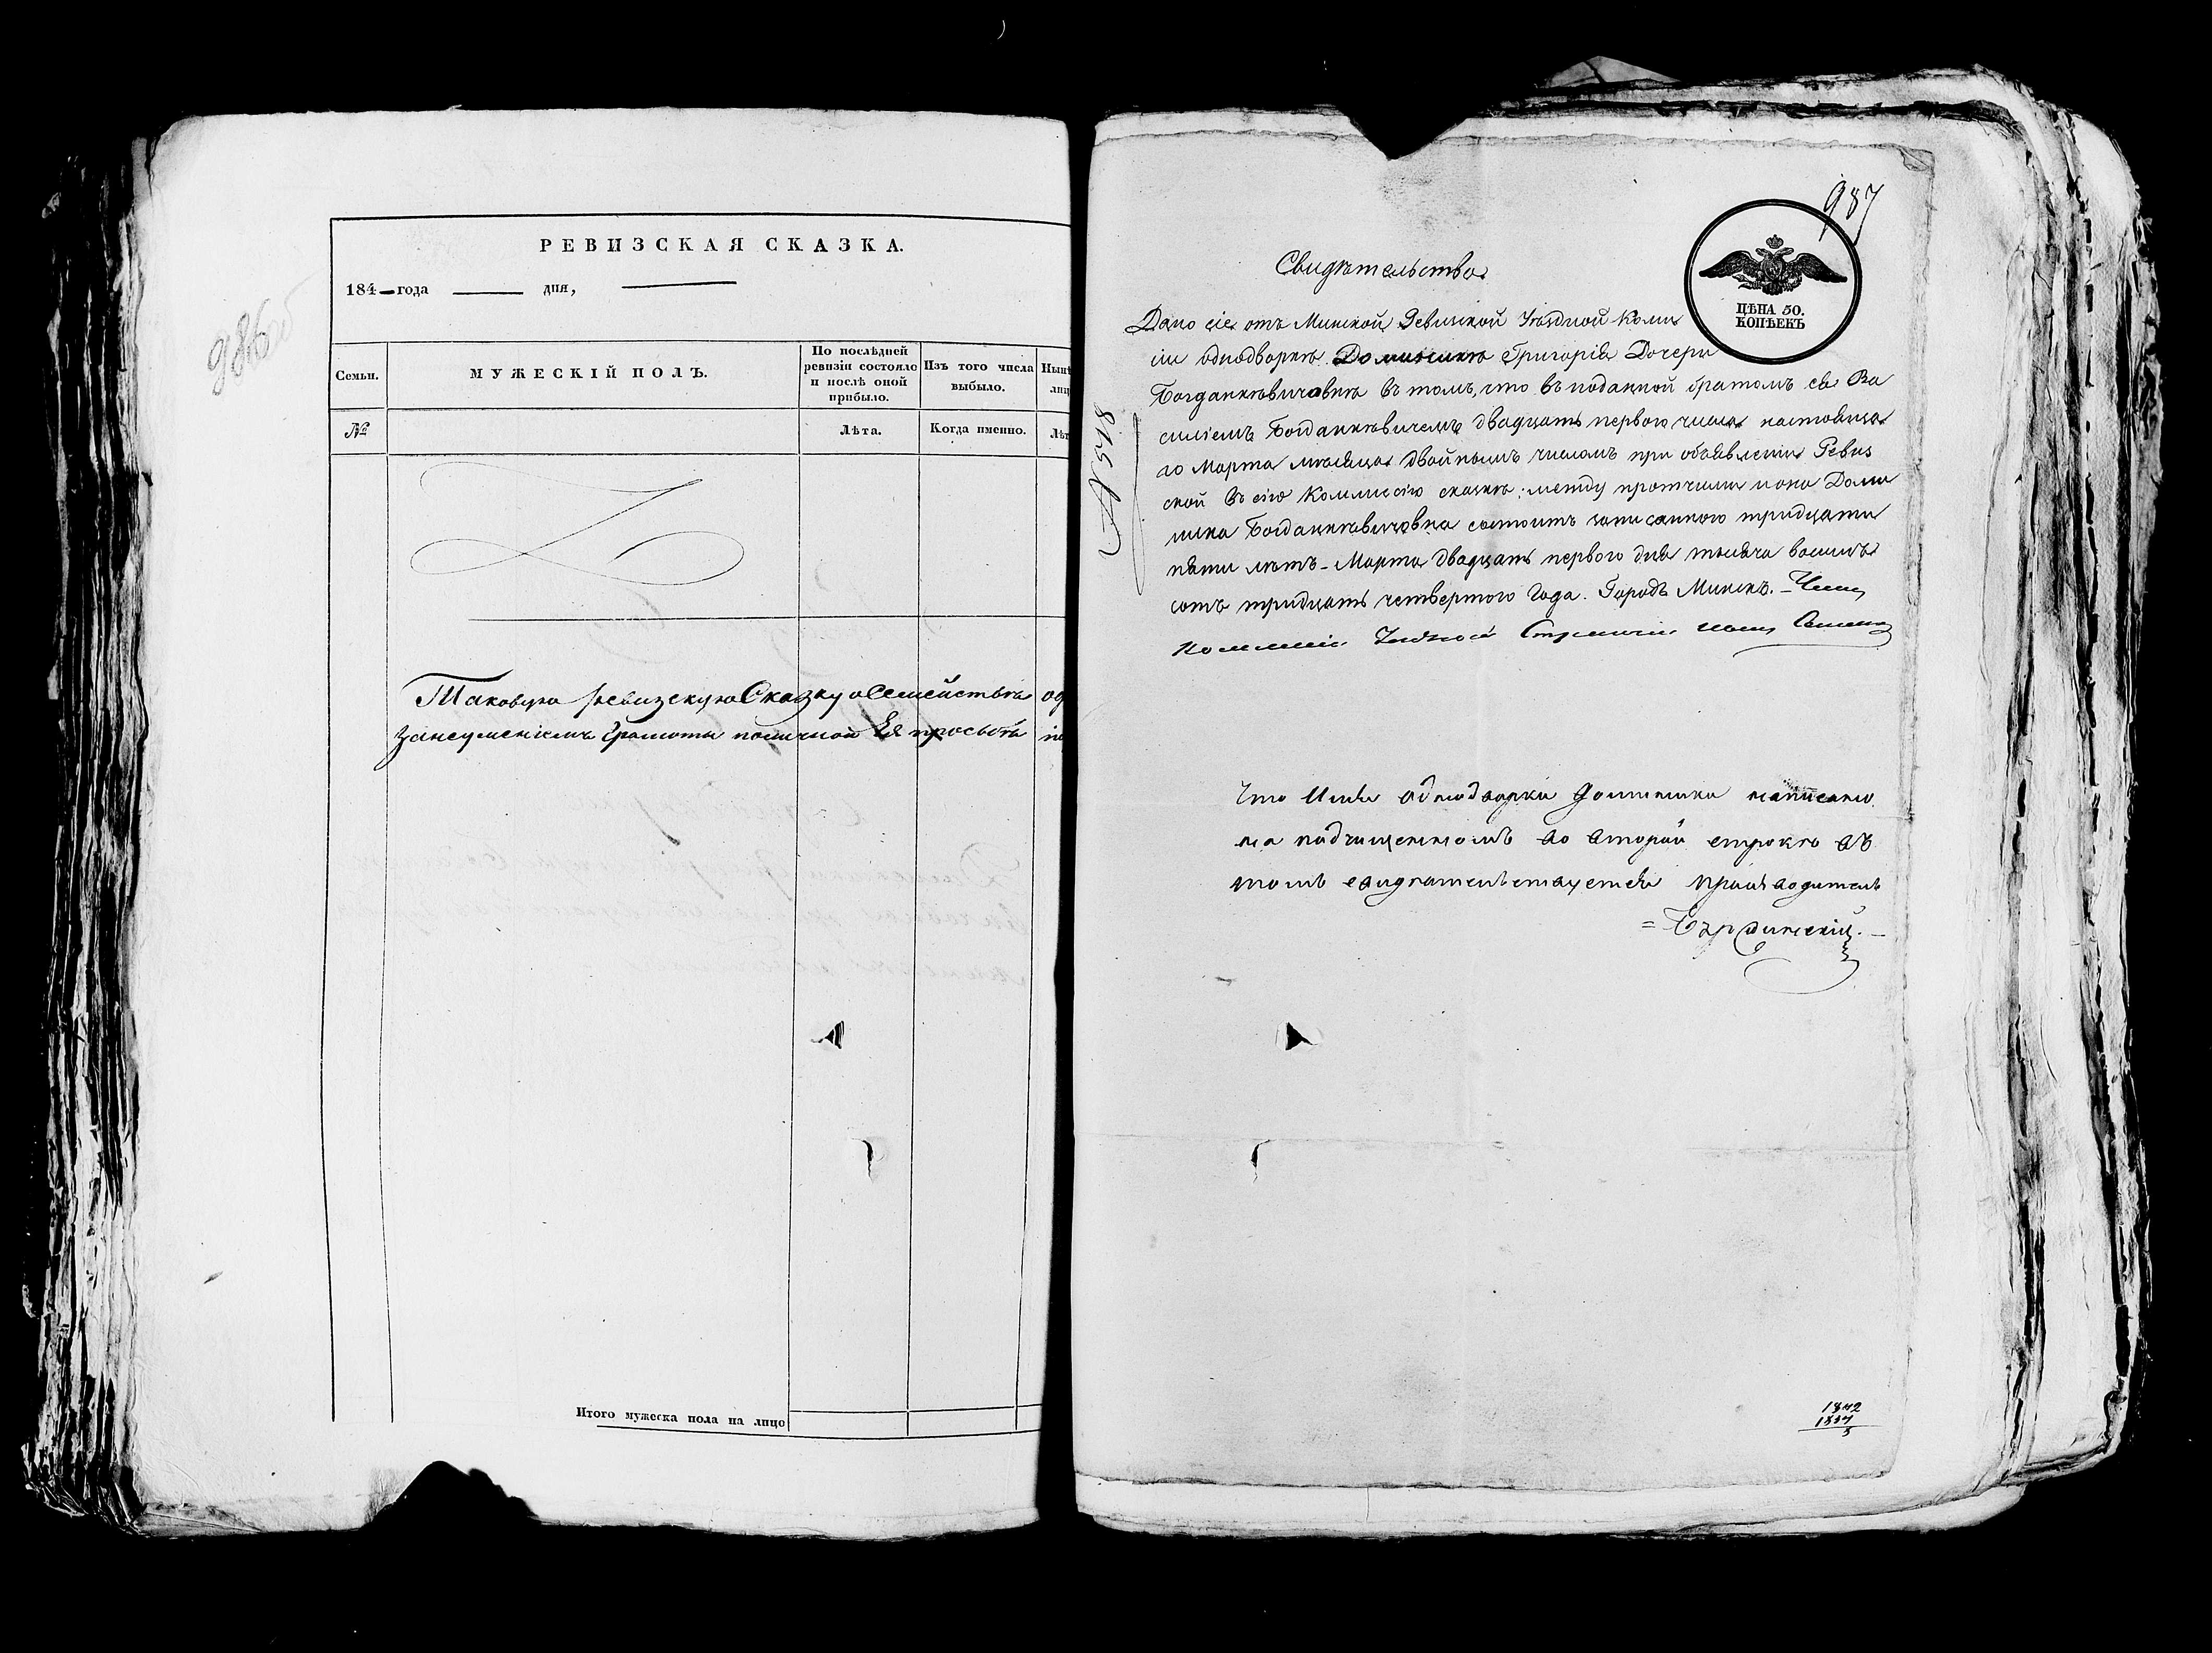 986 об
РЕВИЗСКАЯ СКАЗКА.
184 года дня,
Семьи.
МУЖЕСКІЙ ПОЛЪ.
По послѣдней ревизіи состояло и послѣ оной прибыло.
Изъ того числа выбыло.
Нынѣ
лиц
№
Лѣта.
Когда именно.
Лѣт
Таковую ревизскую Сказку о Семействѣ од
за неумѣніемъ грамоты по личной Ея прозьбѣ
Итого мужеска пола на лицо
987
ЦѢНА 50.
КОПѢЕКЪ
Свидѣтельство
Дано сіе отъ Минской Ревизской Уѣздной Комис
іи однодворкѣ Доминикѣ Григорія Дочери
Богданкѣвичовнѣ въ томъ, что въ поданной братомъ ея Ва
силіемъ Богданкѣвичемъ двадцать перваго числа настояща
го Марта мѣсяца двойнымъ числомъ при объявленіи Ревиз
ской въ сію Коммисію сказкѣ; между протчими и она Доми
ника Богданкѣвичовна состоитъ записанною тридцати
пяти лѣтъ - Марта двадцать перваго дня тысяча восемъ
сотъ тридцать четвертого Года. Городъ Минскъ. - Член
Коммисіи Уѣздной Стряпчій
Что Имя однодворки Доминики написано
на подчищенномъ во второй строкѣ въ
томъ свидѣтельствуется производитель
1842
1837
5